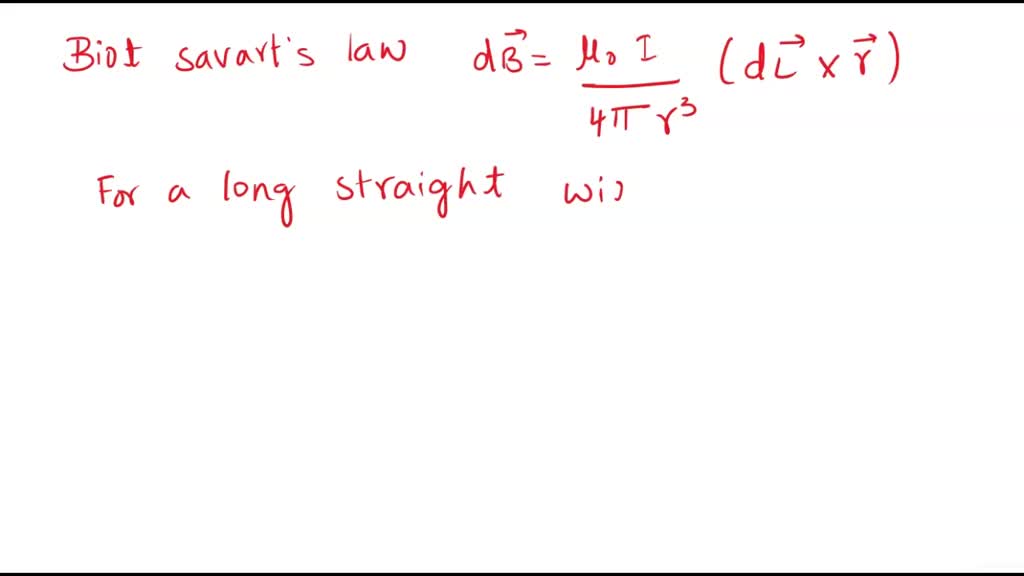 Biot savart's law dB⃗ = μ₀ I / 4π r³ (dL⃗ x r⃗)
For a long straight wi